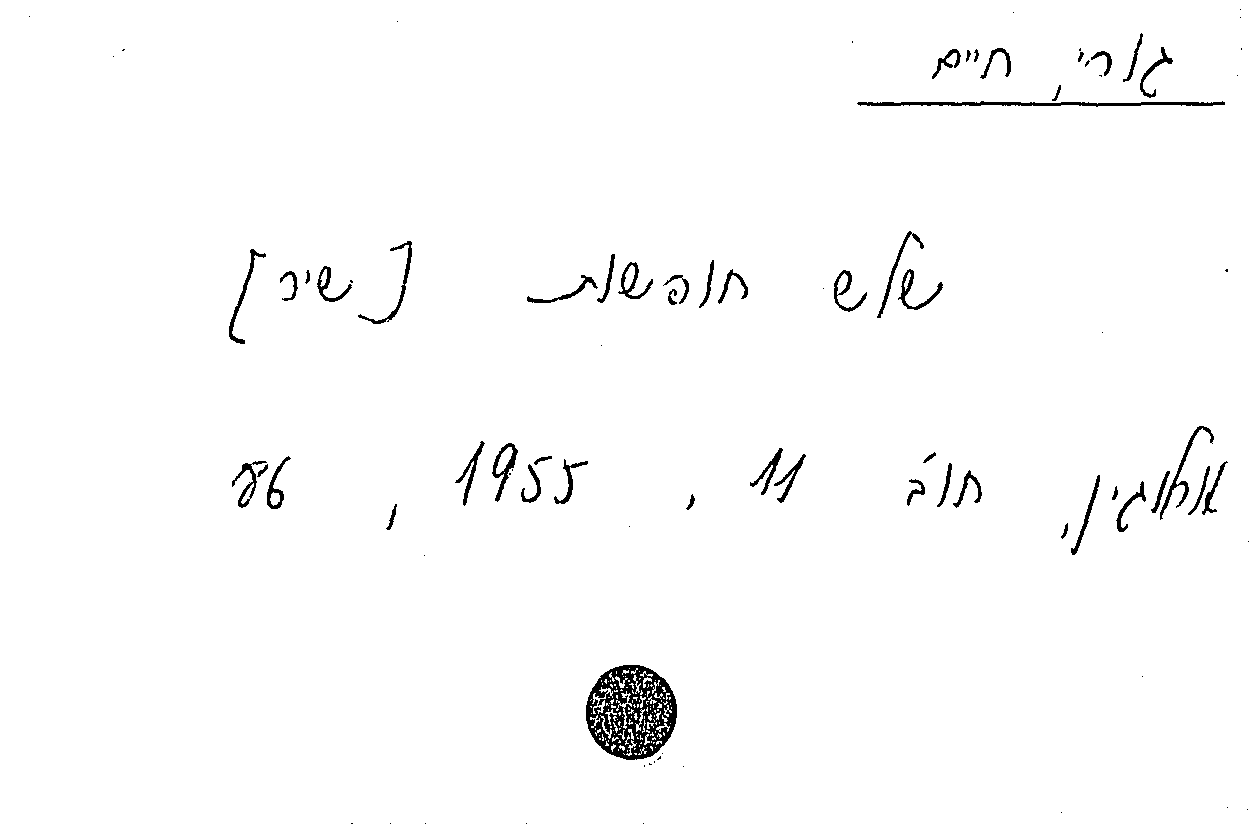 גורי, חיים
שלש חופשות [שיר]
אורלוגין, חוב' 11, 1955, 86